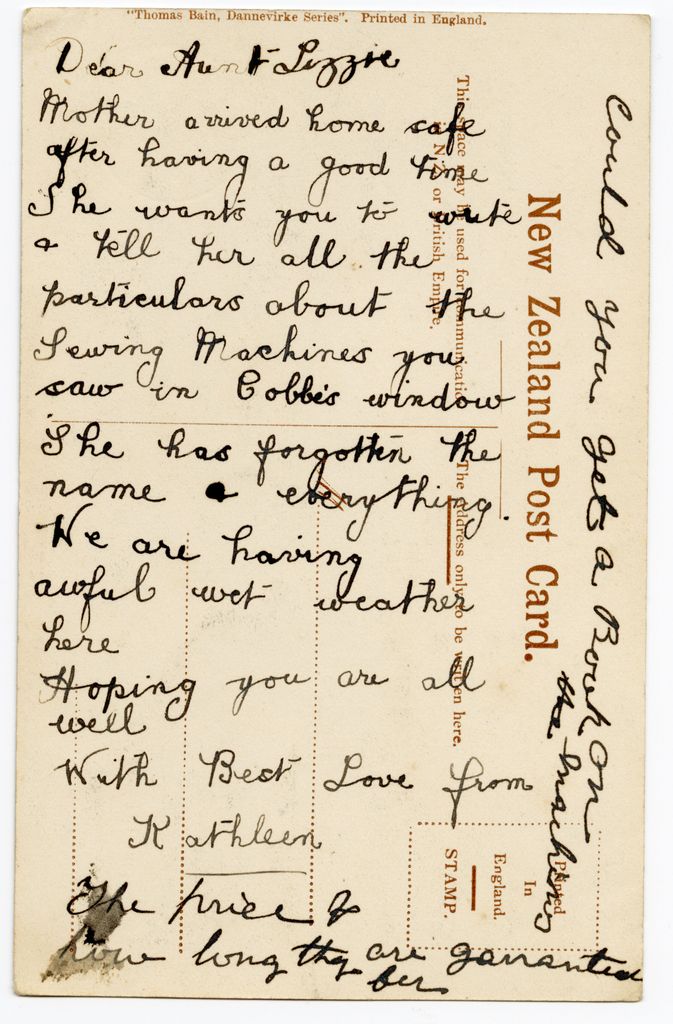 "Thomas Bain, Dannevirke Series". Printed in England.
Dear Aunt Lizzie
Mother arrived home safe
after having a good time
She wants you to write
& tell her all the
particulars about the
Sewing Machines you
saw in Cobbes window
She has forgotten the
name & everything.
We are having
awful wet weather
here
Hoping you are all
well
With Best Love from
Kathleen
The price &
how long thy are garranted
for
Could you get a Book on
the machines
New Zealand Post Card.
This space may be used for communication
in N.Z. or British Empire.
The address only to be written here.
Printed
In
England.
STAMP.